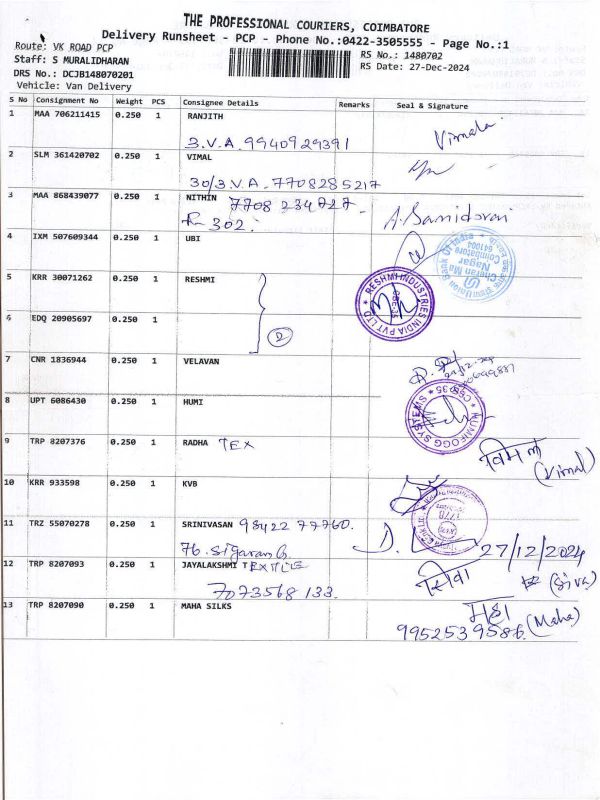 THE PROFESSIONAL COURIERS, COIMBATORE
Delivery Runsheet - PCP - Phone No.:0422-3505555 - Page No.:1
Route: VK ROAD PCP
Staff: S MURALIDHARAN
DRS No.: DCJB148070201
Vehicle: Van Delivery
RS No.: 1480702
RS Date: 27-Dec-2024
S No Consignment No Weight PCS Consignee Details Remarks Seal & Signature
1 MAA 706211415 0.250 1 RANJITH
3.V.A. 9940929391 Vimala
2 SLM 361420702 0.250 1 VIMAL
30/3.V.A. 7708285217
3 MAA 868439077 0.250 1 NITHIN 7708 234727
302. A. Samidorai
4 IXM 507609344 0.250 1 UBI
Union Bank Of India
Cheran Ma Nagar
Coimbatore
641004
5 KRR 30071262 0.250 1 RESHMI
RESHMI INDUSTRIES INDIA PVT LTD
CBE-35
6 EDQ 20905697 0.250 1
2
7 CNR 1836944 0.250 1 VELAVAN
8 UPT 6086430 0.250 1 HUMI
HUMIFOGG SYSTEMS
CBE-35
9 TRP 8207376 0.250 1 RADHA TEX
विमल
(Vimal)
10 KRR 933598 0.250 1 KVB
1778
11 TRZ 55070278 0.250 1 SRINIVASAN 98422 77760.
27/12/2024
12 TRP 8207093 0.250 1 JAYALAKSHMI TEXTILE
7073568 133.
सिवा (Siva)
13 TRP 8207090 0.250 1 MAHA SILKS
महा (Maha)
9952539586.